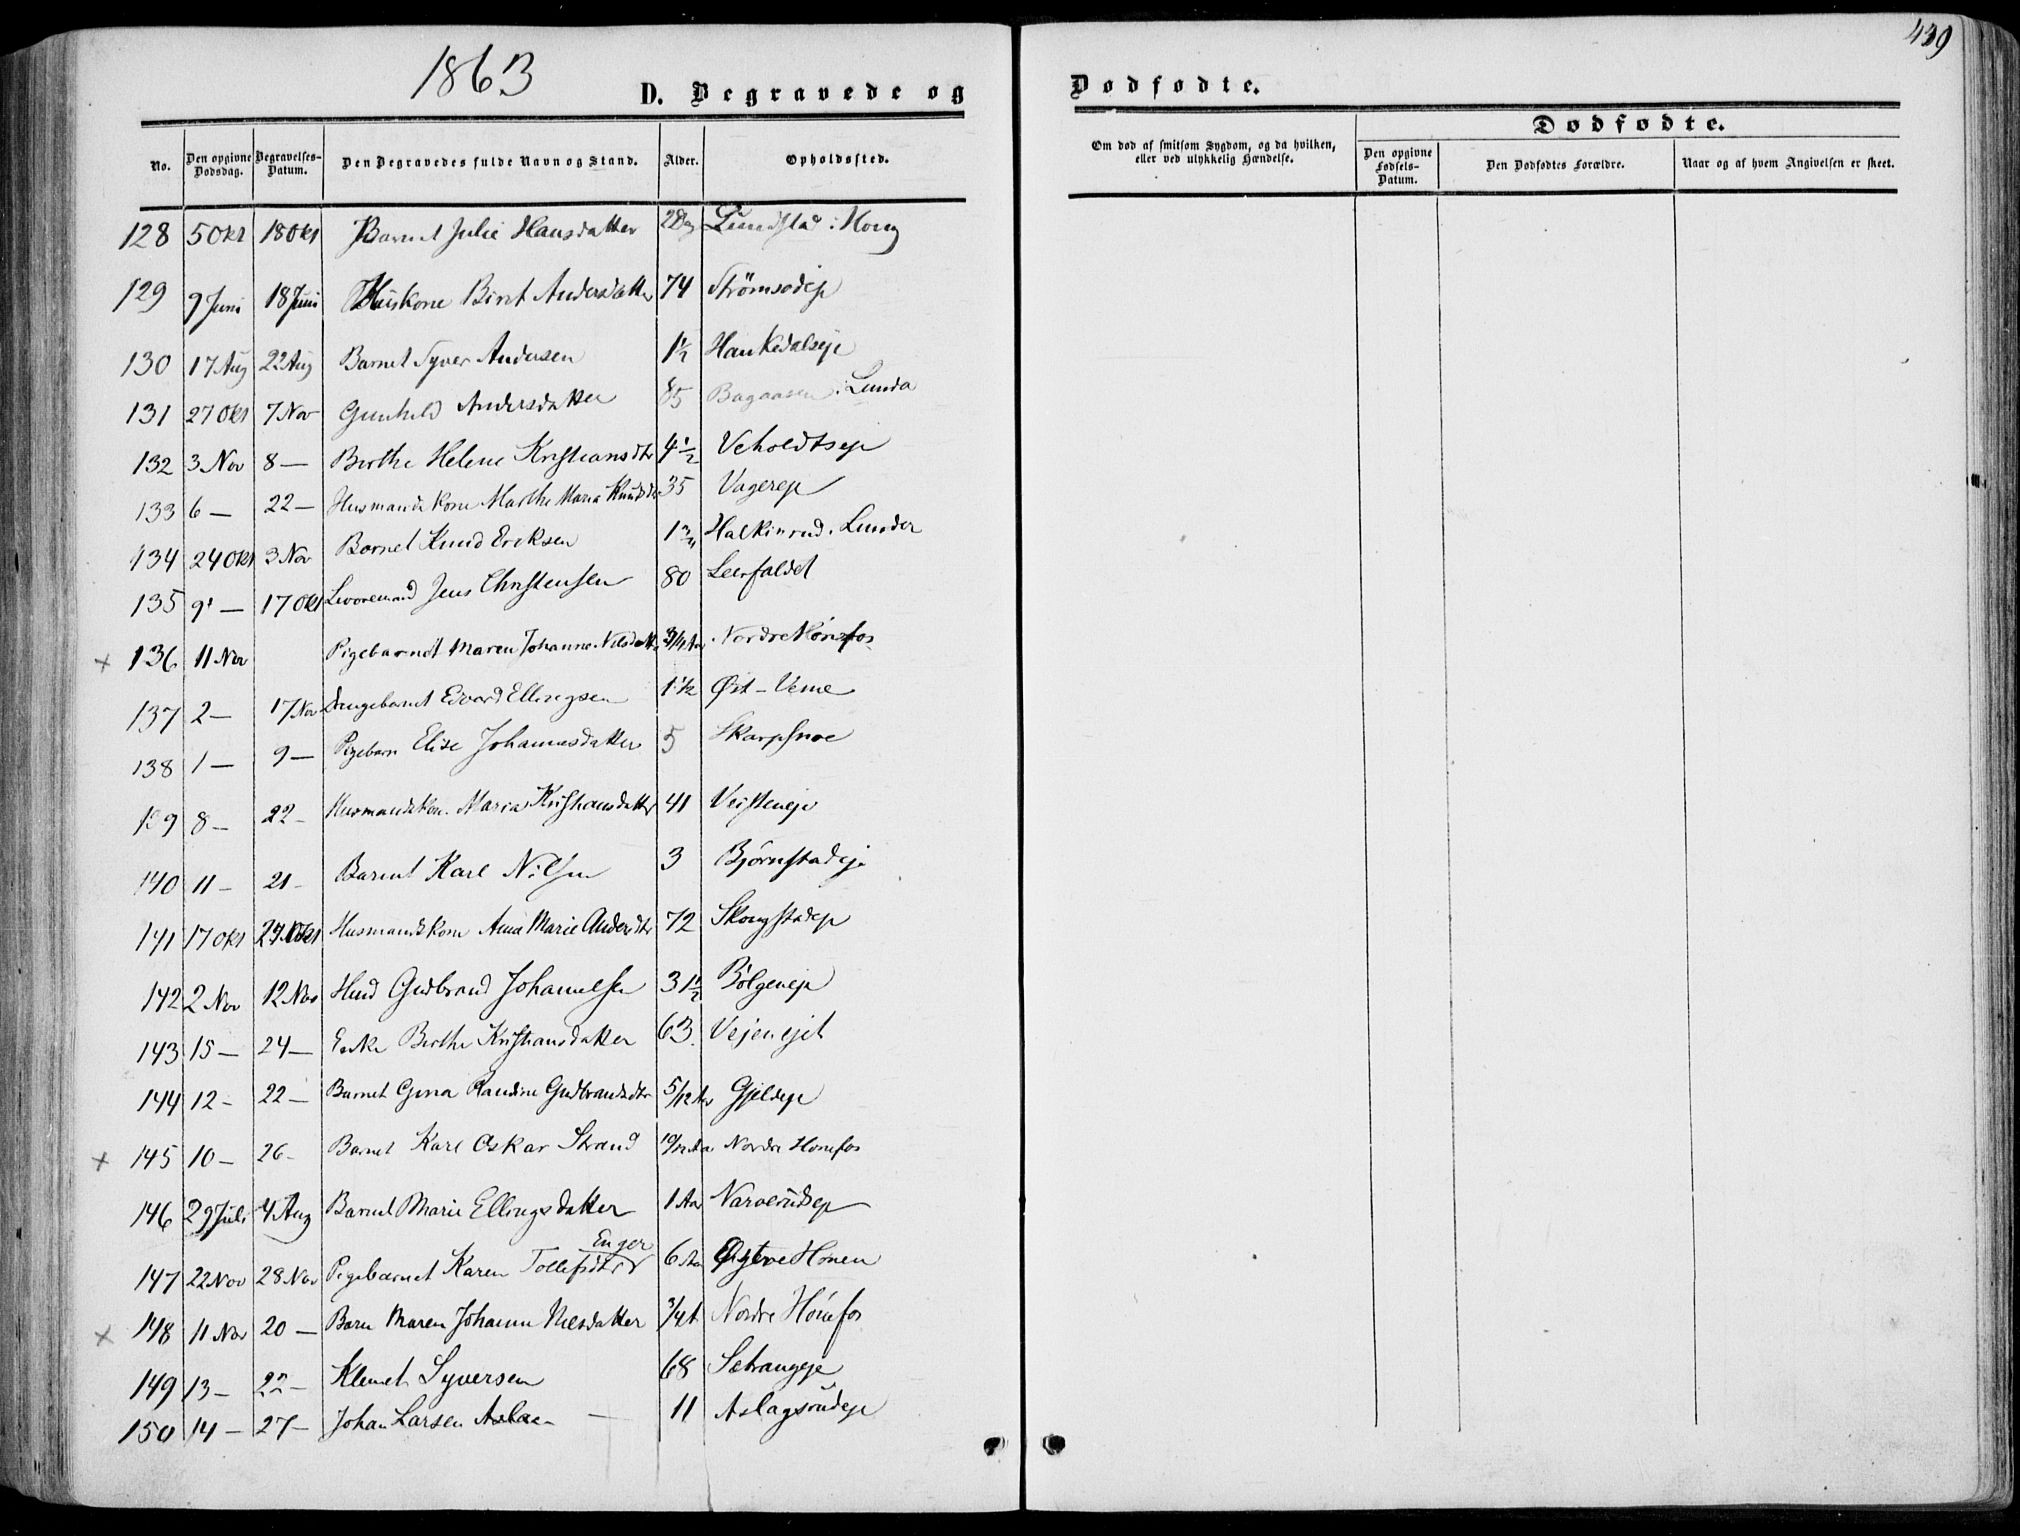 1863
439
D. Begravede og
Dødfødte.
No. Den opgivne Dødsdag. Begravelses-Datum. Den Begravedes fulde Navn og Stand. Alder. Opholdssted.
Om død af smitsom Sygdom, og da hvilken, eller ved ulykkelig Hændelse.
Dødfødte.
Den opgivne Fødsels-Datum. Den Dødfødtes Forældre. Naar og af hvem Angivelsen er skeet.
128 5 Okt 18 Okt Barnet Julie Hansdatter 2 Dg Lundstad i Houg
129 9 Juni 18 Juni Huskone Birit Andersdatter 74 Strømsodeje
130 17 Aug 22 Aug Barnet Syver Andersen 1½ Hankedalseje
131 27 Okt 7 Nov Gunhild Andersdatter 85 Bagaasen i Lunda
132 3 Nov 8 — Berthe Helene Kristiansdtr 4½ Veholdtseje
133 6 — 22 — Husmandskone Marthe Maria Knudsdtr 35 Vagereje
134 24 Okt 3 Nov Barnet Knud Eriksen 1¾ Halkinrud i Lunder
135 9 — 17 Okt Jens Christensen 80 Leerfaldet
× 136 11 Nov Pigebarnet Maren Johanne Nilsdatt 3/4 Aar Nordre Hønefos
137 2 — 17 Nov Drengebarnet Edvard Ellingsen 1½ Øst-Veme
138 1 — 9 — Pigebarn Elise Johannesdatter 5 Skarpsnoe
139 8 — 22 — Husmandskon. Maria Kristiansdatter 41 Veisteneje
140 11 — 21 — Barnet Karl Nilsen 3 Bjørnstadeje
141 17 Okt Husmandskone Anna Marie Andersdtr 72 Skougstadeje
142 2 Nov 12 Nov Gudbrand Johannessen 31½ Bølgeneje
143 15 — 24 — Enke Berthe Kristiansdatter 63. Vejenejet
144 12 — 22 — Barnet Gina Randine Gudbrandsdtr 5/12 Aar Gjeldeje
× 145 10 — 26 — Barnet Karl Oskar Strand 10/12 Aar Nordre Hønefos
146 29 Juli 4 Aug Barnet Marie Ellingsdatter 1 Aar Narverudseje
Enger
147 22 Nov 28 Nov Pigebarnet Karen Tollefsdtr 6 Aar Øystre Hønen
× 148 11 Nov 20 — Barn Maren Johanne Nilsdatter 3/4 Nordre Hønefos
149 13 — 22 — Klemet Syversen 68 Setrangeje
150 14 — 27 — Johan Larsen 11 Aslagsrudeje